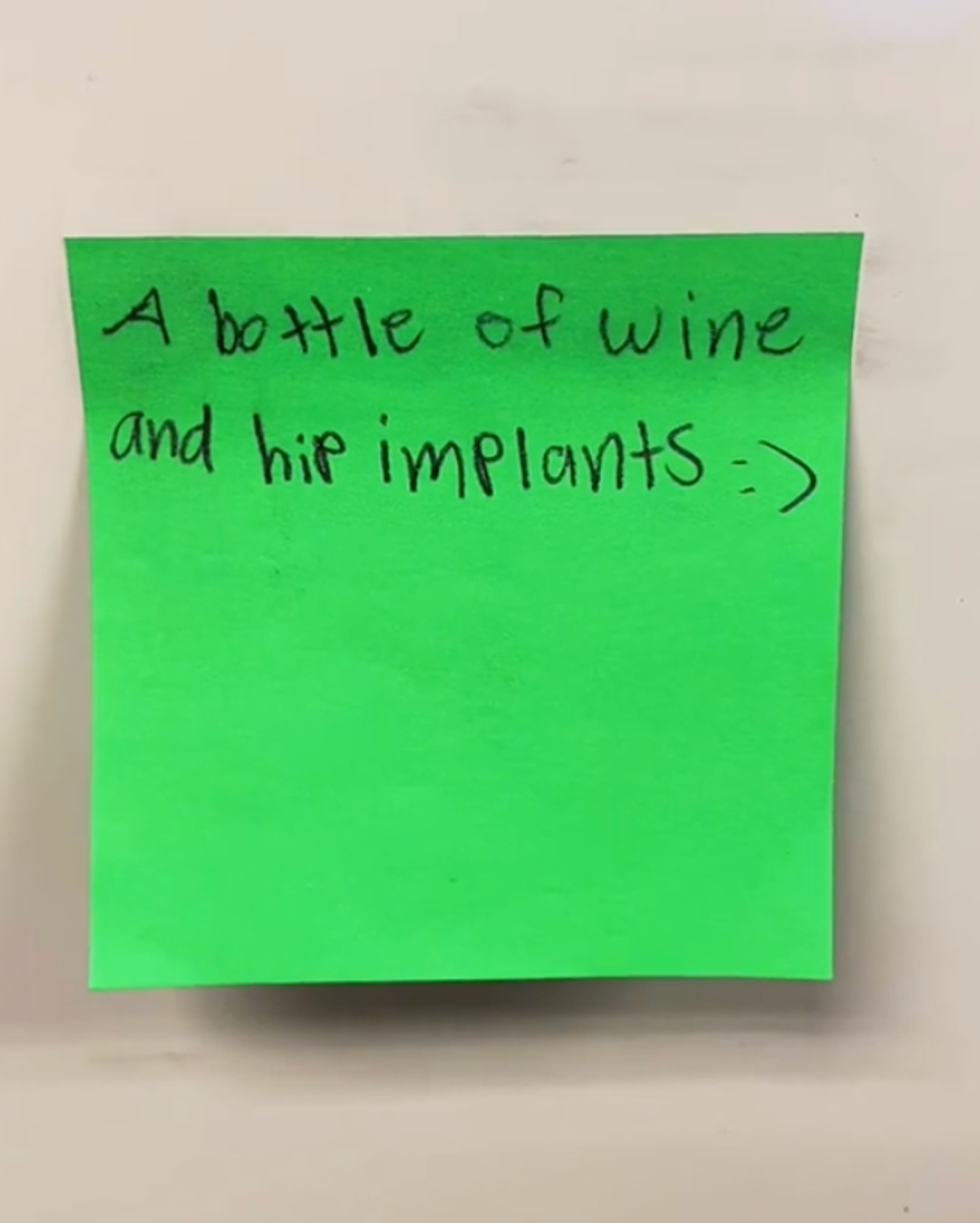 A bottle of wine
and hip implants :)